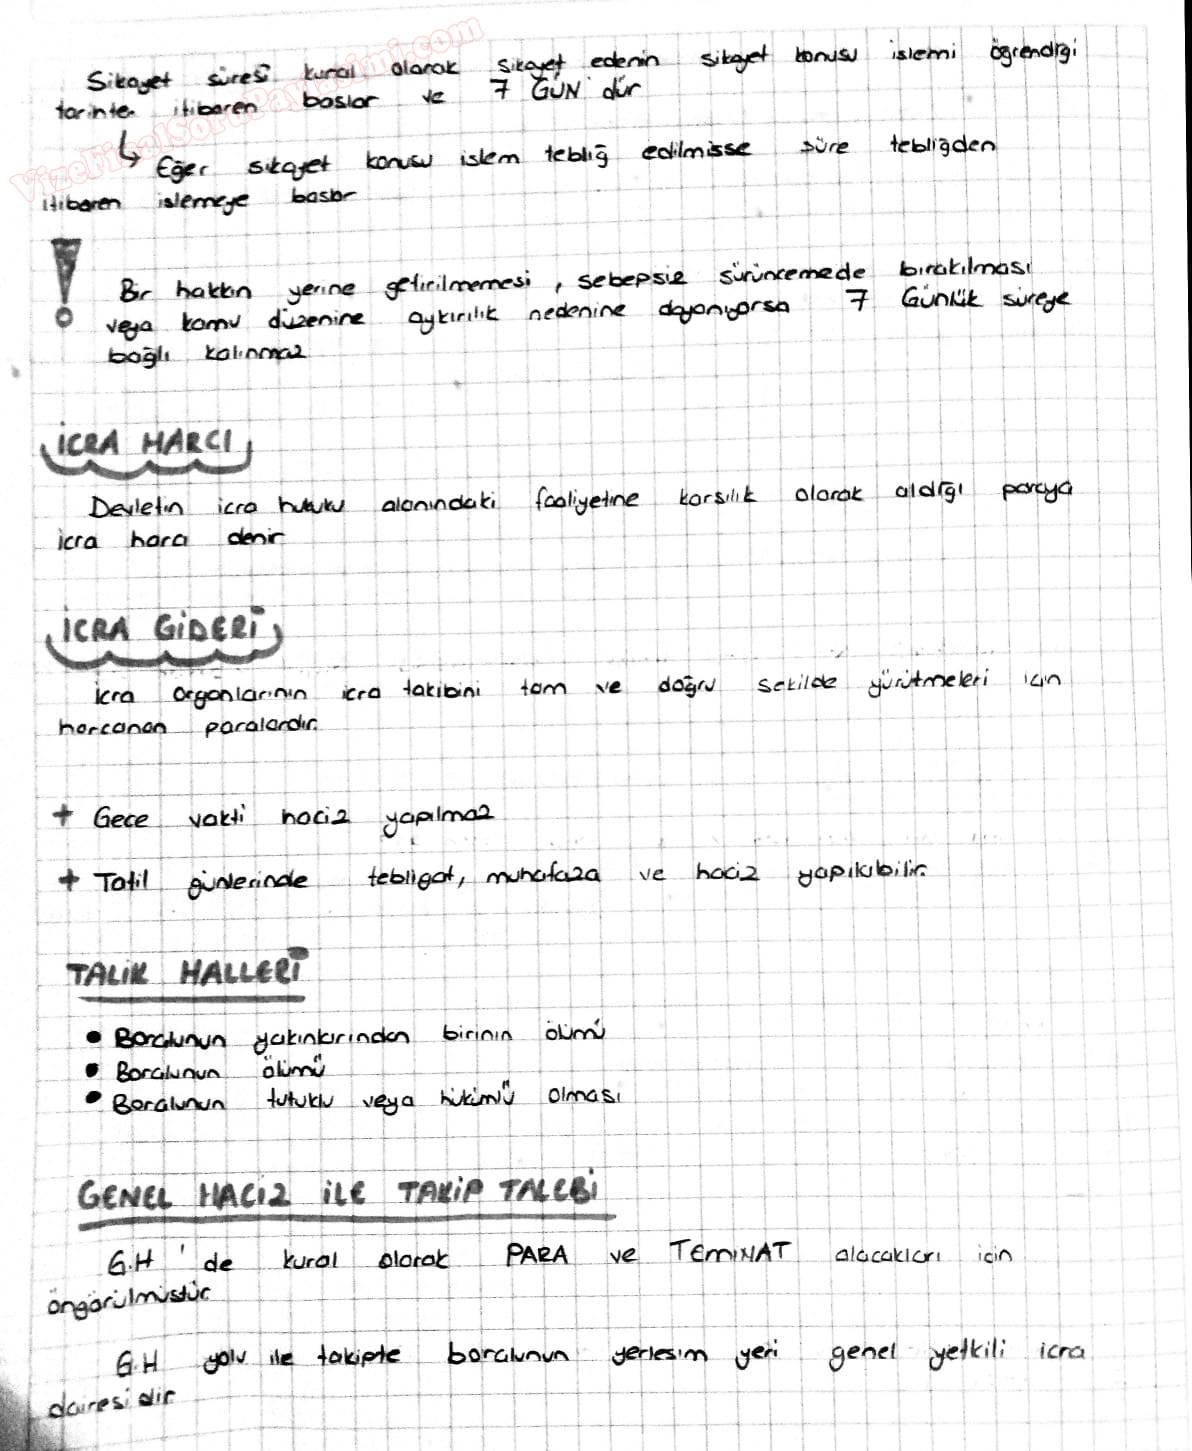 Şikayet süresi kural olarak şikayet edenin şikayet konusu işlemi öğrendiği
tarihten itibaren başlar ve 7 GÜN'dür
↳ Eğer şikayet konusu işlem tebliğ edilmişse süre tebliğden
itibaren işlemeye başlar
! Bir hakkın yerine getirilmemesi, sebepsiz sürüncemede bırakılması
veya kamu düzenine aykırılık nedenine dayanıyorsa 7 Günlük süreye
bağlı kalınmaz
İCRA HARCI
Devletin icra hukuku alanındaki faaliyetine karşılık olarak aldığı paraya
icra harcı denir
İCRA GİDERİ
İcra organlarının icra takibini tam ve doğru şekilde yürütmeleri için
harcanan paralardır.
+ Gece vakti haciz yapılmaz
+ Tatil günlerinde tebligat, muhafaza ve haciz yapılabilir.
TALİK HALLERİ
• Borçlunun yakınlarından birinin ölümü
• Borçlunun ölümü
• Borçlunun tutuklu veya hükümlü olması
GENEL HACİZ İLE TAKİP TALEBİ
G.H 'de kural olarak PARA ve TEMİNAT alacakları için
öngörülmüştür
G.H yolu ile takipte borçlunun yerleşim yeri genel yetkili icra
dairesidir
VizeFinalSoruPaylasimi.com